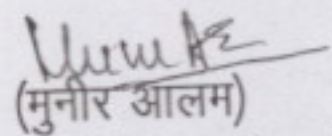 (मुनीर आलम)